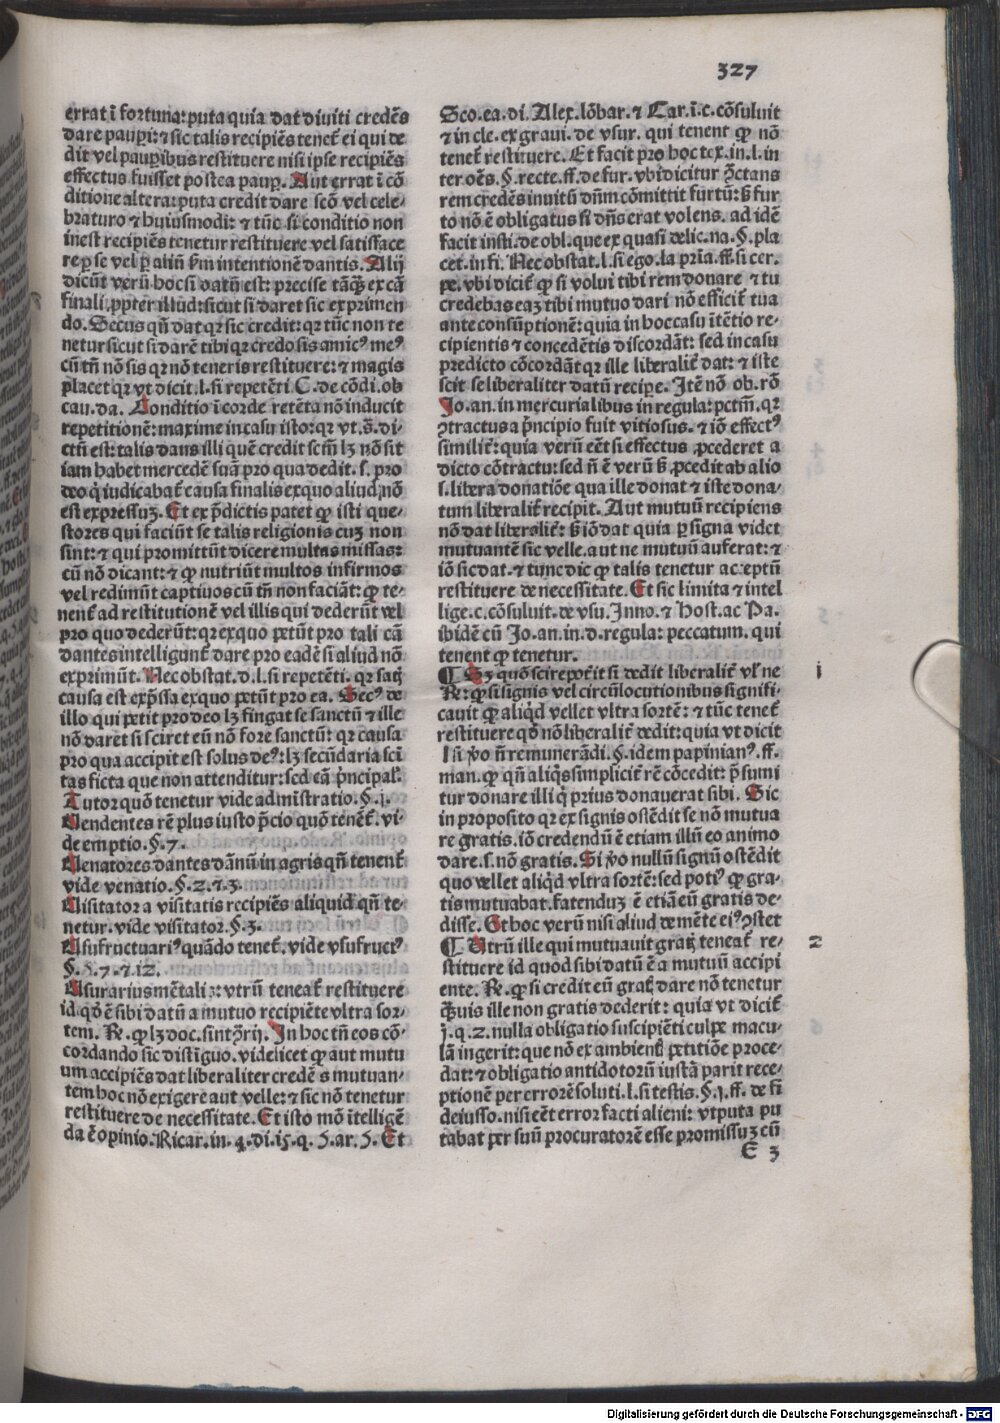 327
errat ī fortuna: puta quia dat diuiti credēs
dare paupi: ⁊ sic talis recipiēs tenet̄ ei qui de
dit vel pauꝑibus restituere nisi ipse recipiēs
effectus fuisset postea paup. Aut errat ī cō
ditione altera: puta credit dare scō vel cele-
braturo ⁊ huiusmodi: ⁊ tūc si conditio non
inest recipiēs tenetur restituere vel satisface
re ꝑ se vel ꝑ aliū ẜm intentionē dantis. Alij
dicūt verū hoc si datū est: precise tāꝗ̄ ex cā
finali ꝓpter illud: sicut si daret sic exprimen
do. Secus qn̄ dat qꝛ sic credit: qꝛ tūc non te
netur sicut si darē tibi qꝛ credo sis amicꝰ meꝰ
cū tn̄ nō sis qꝛ nō teneris restituere: ⁊ magis
placet qꝛ vt dicit .l. si repetēti C. de cōdi. ob
cau. da. Conditio ī corde retēta nō inducit
repetitionē: maxime in casu isto: qꝛ vt .s̄. di-
ctū est: talis dans illi quē credit sctm̄ lꝫ nō sit
iam habet mercedē suā pro qua dedit .s. pro
deo q̇ iudicabat̄ causa finalis ex quo aliud nō
est expressuꝫ. Et ex p̄dictis patet ꝙ isti que-
stores qui faciūt se talis religionis cuꝫ non
sint: ⁊ qui promittūt dicere multas missas:
cū nō dicant: ⁊ ꝙ nutriūt multos infirmos
vel redimūt captiuos cū tn̄ non faciāt: ꝙ te-
nent̄ ad restitutionē vel illis qui dederūt vel
pro quo dederūt: qꝛ ex quo petūt pro tali cā
dantes intelligunt̄ dare pro eadē si aliud nō
exprimūt. Nec obstat .d. l. si repetēti. qꝛ satis
causa est exp̄ssa ex quo petūt pro ea. Secꝰ de
illo qui petit pro deo lꝫ fingat se sanctū ⁊ ille
nō daret si sciret eū nō fore sanctū: qꝛ causa
pro qua accipit est solus deꝰ: lꝫ secūdaria scī
tas ficta que non attenditur: sed cā p̄ncipal.
Tutor quō tenetur vide admistratio. §. j.
Vendentes rē plus iusto p̄cio quō tenēt̄. vi-
de emptio. §. 7.
Venatores dantes dānū in agris qn̄ tenent̄
vide venatio. §. 2. ⁊. 3.
Visitator a visitatis recipiēs aliquid qn̄ te-
netur. vide visitator. §. 3.
Vsufructuariꝰ quādo tenet̄. vide vsufructꝰ
§. 7. ⁊. 12.
Vsurarius mētalis: vtrū teneat̄ restituere
id qd̓ ē sibi datū a mutuo recipiēte vltra sor-
tem. R̄. ꝙ lꝫ doc. sint ꝯ̄rij. In hoc tn̄ eos cō-
cordando sic distīguo. videlicet ꝙ aut mutu
um accipiēs dat liberaliter credēs mutuan-
tem hoc nō exigere aut velle: ⁊ sic nō tenetur
restituere de necessitate. Et isto mō ītelligē
da ē opinio. Ricar. in. 4. di. 15. q. 5. ar. 5. Et
Sco. ea. di. Alex. lōbar. ⁊ Car. ī. c. cōsuluit
⁊ in cle. ex graui. de vsur. qui tenent ꝙ nō
tenet̄ restituere. Et facit pro hoc tex. in .l. in
ter oēs. §. recte. ff. de fur. vbi dicitur ꝯ̄ctans
rem credēs inuitū dn̄m cōmittit furtū: ẜ fur
to nō ē obligatus si dn̄s erat volens. ad idē
facit insti. de obl. que ex quasi delic. na. §. pla
cet. in fi. Nec obstat .l. si ego. la pria. ff. si cer.
pe. vbi dicit̄ ꝙ si volui tibi rem donare ⁊ tu
credebas eaꝫ tibi mutuo dari nō efficit̄ tua
ante consūptionē: quia in hoc casu ītētio re-
cipientis ⁊ concedētis discordāt: sed in casu
predicto cōcordāt qꝛ ille liberalit̄ dat: ⁊ iste
scit se liberaliter datū recipe. Itē nō ob. rō
Jo. an. in mercurialibus in regula: pctm̄. qꝛ
ꝯtractus a p̄ncipio fuit vitiosus. ⁊ iō effectꝰ
similit̄: quia verū eēt si effectus ꝓcederet a
dicto cōtractu: sed n̄ ē verū ẜ ꝓcedit ab alio
.s. libera donatiōe qua ille donat ⁊ iste dona-
tum liberalit̄ recipit. Aut mutuū recipiens
nō dat liberalit̄: ẜ iō dat quia ꝑ signa videt
mutuantē sic velle. aut ne mutuū auferat: ⁊
iō sic dat. ⁊ tunc dic ꝙ talis tenetur acceptū
restituere de necessitate. Et sic limita ⁊ intel
lige. c. cōsuluit. de vsu. Inno. ⁊ Host. ac Pa.
ibidē cū Jo. an. in. d. regula: peccatum. qui
tenent ꝙ tenetur.
¶ Sꝫ quō scire poterit si dedit liberalit̄ vl̓ ne i
R̄: ꝙ si signis vel circūlocutionibus signifi-
cauit ꝙ aliqd̓ vellet vltra sortē: ⁊ tūc tenet̄
restituere qd̓ nō liberalit̄ dedit: quia vt dicit
l. si ṽo n̄ remunerādi. §. idem papinianꝰ. ff.
man. ꝙ qn̄ aliq̇s simplicit̄ rē cōcedit: p̄sumi
tur donare illi q̇ prius donauerat sibi. Sic
in proposito qꝛ ex signis ostēdit se nō mutua
re gratis. iō credendū ē etiam illū eo animo
dare. s. nō gratis. Si ṽo nullū signū ostēdit
quo vellet aliqd̓ vltra sortē: sed potiꝰ ꝙ gra-
tis mutuabat. fatenduꝫ ē etiā eū gratis de-
disse. Et hoc verū nisi aliud de mēte eiꝰ ꝯstet
¶ Vtrū ille qui mutuauit gratis teneat̄ re- 2
stituere id quod sibi datū ē a mutuū accipi
ente. R̄. ꝙ si credit eū gratis dare nō tenetur
ꝗ̄uis ille non gratis dederit: quia vt dicit̄
j. q. 2. nulla obligatio suscipiēti culpe macu-
lā ingerit: que nō ex ambient̄ petitiōe proce-
dat: ⁊ obligatio antidotorū iustā parit rece-
ptionē per errorē soluti. l. si testis. §. j. ff. de fi
deiusso. nisi eēt error facti alieni: vtputa pu
tabat per suū procuratorē esse promissuꝫ cū
E 3
Digitalisierung gefördert durch die Deutsche Forschungsgemeinschaft - DFG